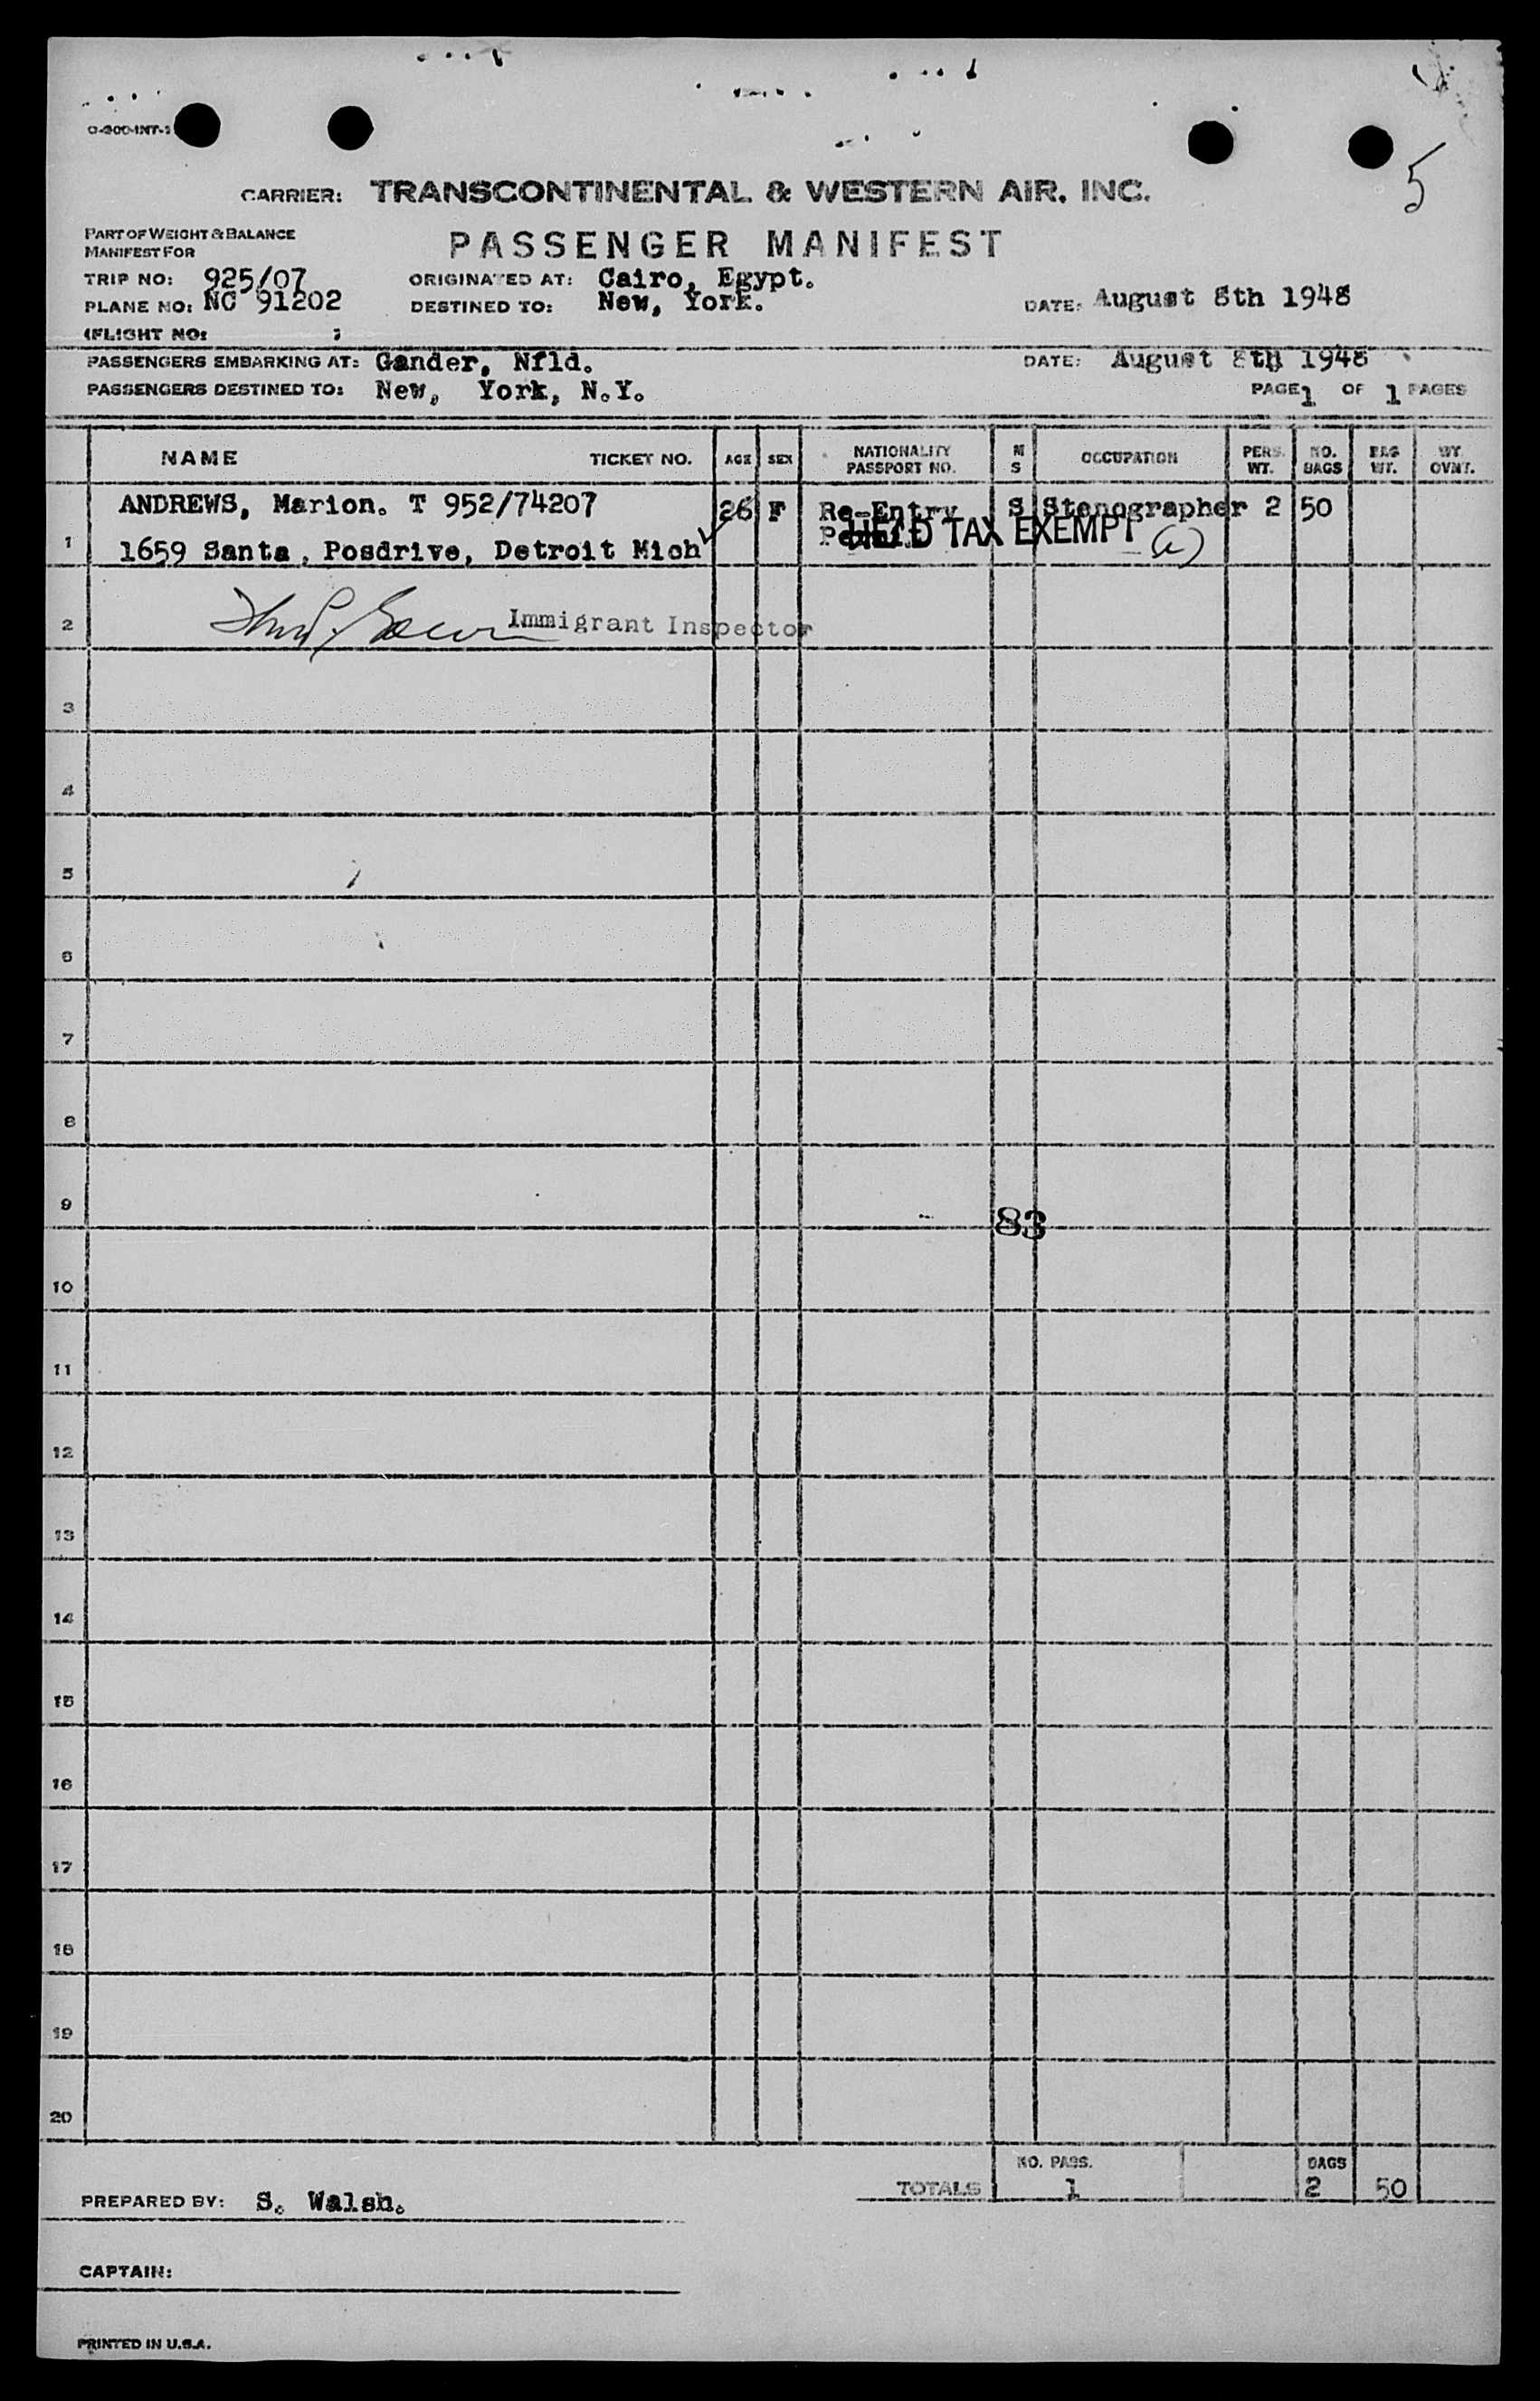 O-200-INT-1
5
CARRIER: TRANSCONTINENTAL & WESTERN AIR, INC.
PART OF WEIGHT & BALANCE
MANIFEST FOR
PASSENGER MANIFEST
TRIP NO: 925/07 ORIGINATED AT: Cairo, Egypt.
PLANE NO: NC 91202 DESTINED TO: New, York. DATE: August 8th 1948
(FLIGHT NO: )
PASSENGERS EMBARKING AT: Gander, Nfld. DATE: August 8th 1948
PASSENGERS DESTINED TO: New, York, N.Y. PAGE 1 OF 1 PAGES
NAME TICKET NO. AGE SEX NATIONALITY PASSPORT NO. M S OCCUPATION PERS. WT. NO. BAGS BAG WT. WT. OVNT.
ANDREWS, Marion. T 952/74207 26 F Re-Entry S Stenographer 2 50
1 1659 Santa, Posdrive, Detroit Mich HEAD TAX EXEMPT (a)
2 Immigrant Inspector
3
4
5
6
7
8
9
83
10
11
12
13
14
15
16
17
18
19
20
NO. PASS. BAGS
TOTALS 1 2 50
PREPARED BY: S. Walsh.
CAPTAIN:
PRINTED IN U.S.A.